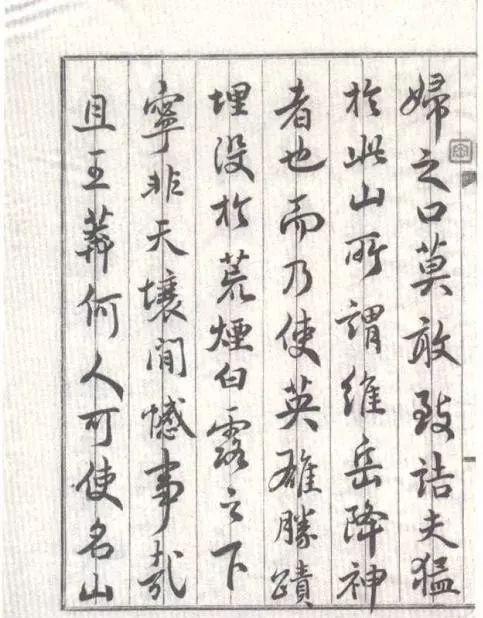 婦之口莫敢致詰夫猛
於此山所謂維岳降神
者也而乃使英雄勝蹟
埋没於荒煙白露之下
寧非天壤間憾事哉
且王莽何人可使名山